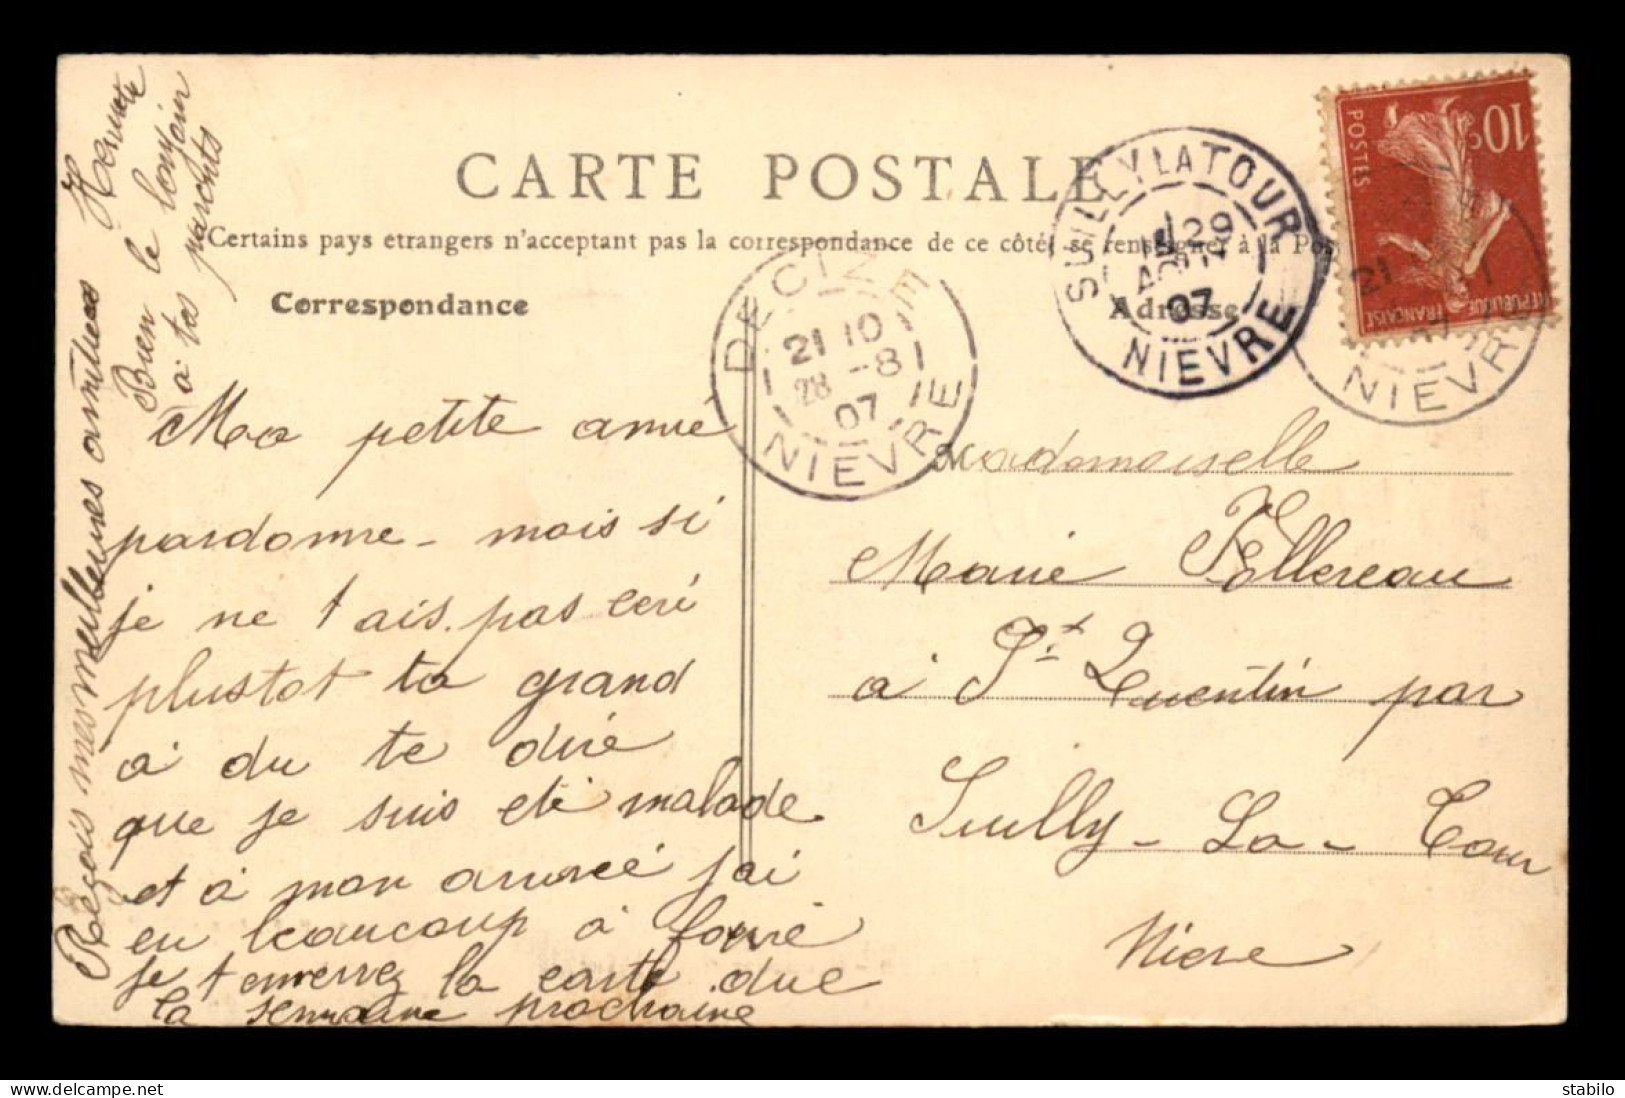 CARTE POSTALE
Certains pays etrangers n'acceptant pas la correspondance de ce côté, se renseigner à la Pos
Correspondance
Adresse
Ma petite amie
pardonne - mois si
je ne t ais pas ceri
plustot ta grand
a du te dire
que je suis eté malade
et a mon arrivée j'ai
eu beaucoup à faire
je t enverrez la carte due
la semaine prochaine
Reçois mes meilleures amitiées
Bien le bonjour
a tes parents
Mademoiselle
Marie Pellereau
a St Quentin par
Suilly - La - Tour
Nievre
DECIZE
21 10
28 -8
07
NIEVRE
SUILLY LA TOUR
29
AOUT
07
NIEVRE
10c
POSTES
REPUBLIQUE
FRANÇAISE
21
NIEVRE
stabilo